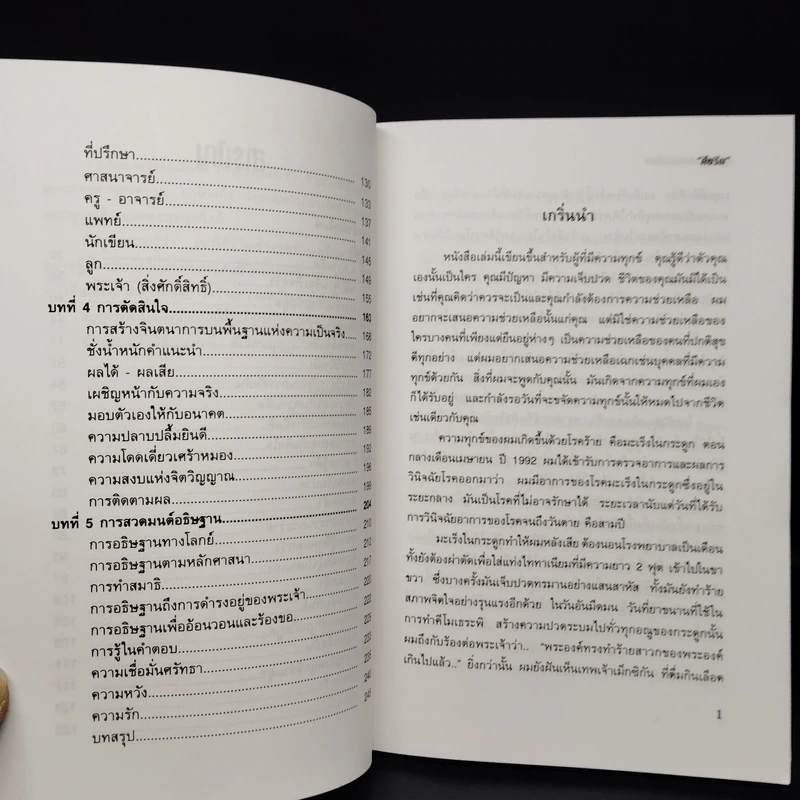 ที่ปรึกษา
ศาสนาจารย์ 130
ครู - อาจารย์ 133
แพทย์ 137
นักเขียน 141
ลูก 145
พระเจ้า (สิ่งศักดิ์สิทธิ์) 149
155
บทที่ 4 การตัดสินใจ 163
การสร้างจินตนาการบนพื้นฐานแห่งความเป็นจริง 168
ชั่งน้ำหนักคำแนะนำ 172
ผลได้ - ผลเสีย 177
เผชิญหน้ากับความจริง 182
มอบตัวเองให้กับอนาคต 185
ความปลาบปลื้มยินดี 189
ความโดดเดี่ยวเศร้าหมอง 192
ความสงบแห่งจิตวิญญาณ 196
การติดตามผล 199
บทที่ 5 การสวดมนต์อธิษฐาน 204
การอธิษฐานทางโลกย์ 210
การอธิษฐานตามหลักศาสนา 212
การทำสมาธิ 217
การอธิษฐานถึงการดำรงอยู่ของพระเจ้า 220
การอธิษฐานเพื่ออ้อนวอนและร้องขอ 223
การรู้ในคำตอบ
ความเชื่อมั่นศรัทธา 235
ความหวัง 240
ความรัก 245
บทสรุป
เกริ่นนำ
หนังสือเล่มนี้เขียนขึ้นสำหรับผู้ที่มีความทุกข์ คุณรู้ดีว่าตัวคุณ
เองนั้นเป็นใคร คุณมีปัญหา มีความเจ็บปวด ชีวิตของคุณมันมิได้เป็น
เช่นที่คุณคิดว่าควรจะเป็นและคุณกำลังต้องการความช่วยเหลือ ผม
อยากจะเสนอความช่วยเหลือนั้นแก่คุณ แต่มิใช่ความช่วยเหลือของ
ใครบางคนที่เพียงแต่ยืนอยู่ห่างๆ เป็นความช่วยเหลือของคนที่ปกติสุข
ดีทุกอย่าง แต่ผมอยากเสนอความช่วยเหลือเฉกเช่นบุคคลที่มีความ
ทุกข์ด้วยกัน สิ่งที่ผมจะพูดกับคุณนั้น มันเกิดจากความทุกข์ที่ผมเอง
ก็ได้รับอยู่ และกำลังรอวันที่จะขจัดความทุกข์นั้นให้หมดไปจากชีวิต
เช่นเดียวกับคุณ
ความทุกข์ของผมเกิดขึ้นด้วยโรคร้าย คือมะเร็งในกระดูก ตอน
กลางเดือนเมษายน ปี 1992 ผมได้เข้ารับการตรวจอาการและผลการ
วินิจฉัยโรคออกมาว่า ผมมีอาการของโรคมะเร็งในกระดูกซึ่งอยู่ใน
ระยะกลาง มันเป็นโรคที่ไม่อาจรักษาได้ ระยะเวลานับแต่วันที่ได้รับ
การวินิจฉัยอาการของโรคจนถึงวันตาย คือสามปี
มะเร็งในกระดูกทำให้ผมหลังเสีย ต้องนอนโรงพยาบาลเป็นเดือน
ทั้งยังต้องผ่าตัดเพื่อใส่แท่งไททาเนียมที่มีความยาว 2 ฟุต เข้าไปในขา
ขวา ซึ่งบางครั้งมันเจ็บปวดทรมานอย่างแสนสาหัส ทั้งมันยังทำร้าย
สภาพจิตใจอย่างรุนแรงอีกด้วย ในวันอันมืดมน วันที่ยาขนานที่ใช้ใน
การทำคีโมเธระพี สร้างความปวดระบมไปทั่วทุกอณูของกระดูกนั้น
ผมถึงกับร้องต่อพระเจ้าว่า.. "พระองค์ทรงทำร้ายสาวกของพระองค์
เกินไปแล้ว.." ยิ่งกว่านั้น ผมยังฝันเห็นเทพเจ้าเม็กซิกัน ที่ดื่มกินเลือด
1